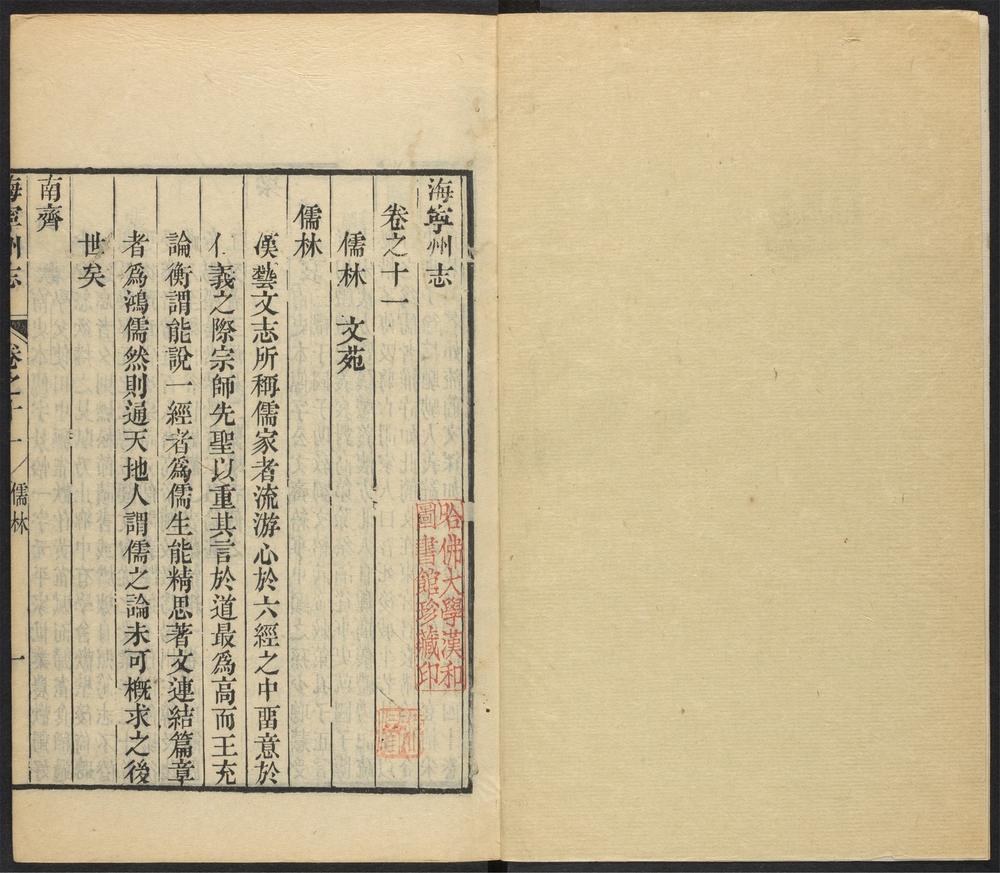 海寧州志
卷之十一
儒林　文苑
儒林
漢藝文志所稱儒家者流游心於六經之中畱意於
仁義之際宗師先聖以重其言於道最爲高而王充
論衡謂能說一經者爲儒生能精思著文連結篇章
者爲鴻儒然則通天地人謂儒之論未可槪求之後
世矣
南齊
海寧州志　卷之十一　儒林　一
哈佛大學漢和
圖書館珍藏印